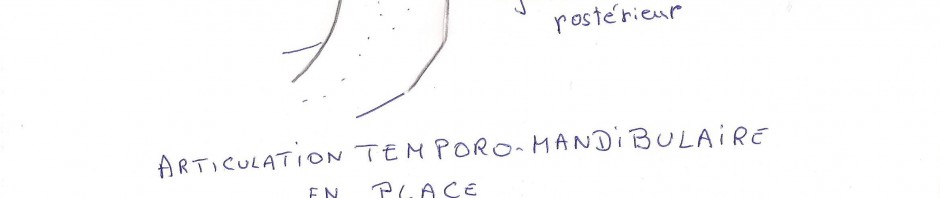 postérieur
ARTICULATION TEMPORO-MANDIBULAIRE
EN PLACE